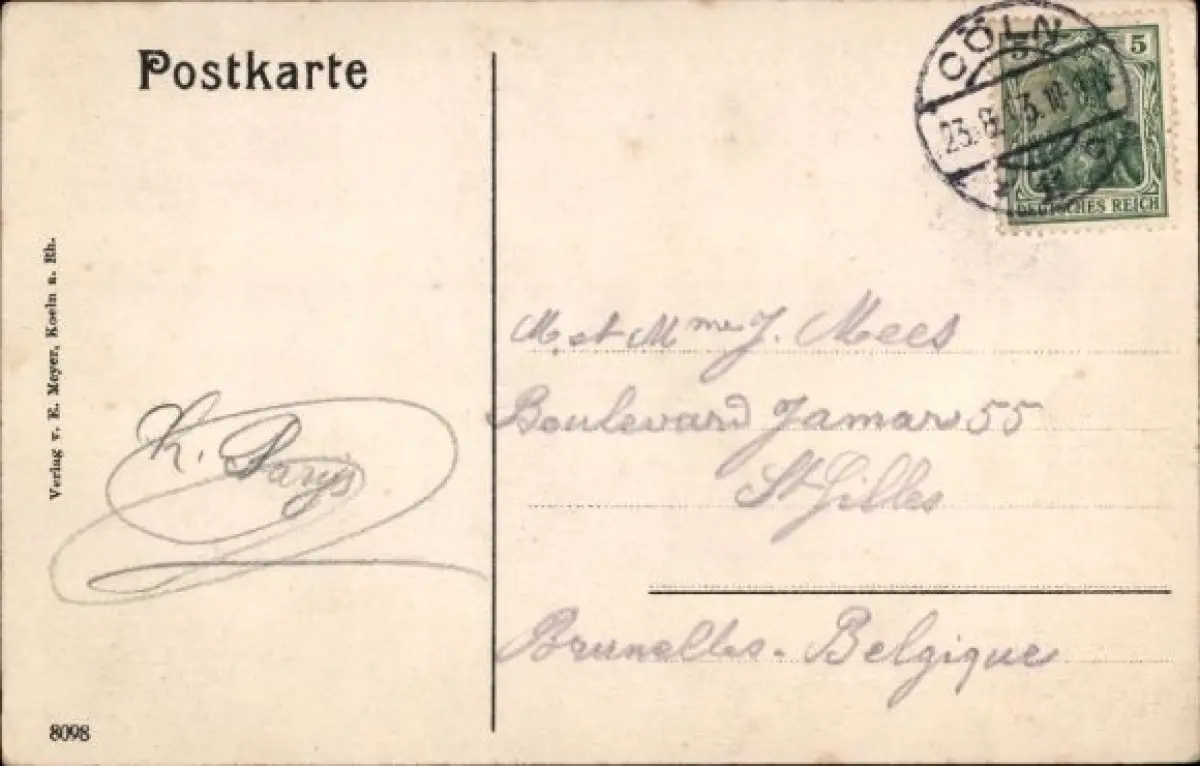 Postkarte
Verlag v. E. Meyer, Koeln a. Rh.
K. Parijs
8098
CÖLN
23.8.13.
5 5
DEUTSCHES REICH
M. et Mme J. Mees
Boulevard Jamar 55
St Gilles
Bruxelles - Belgique